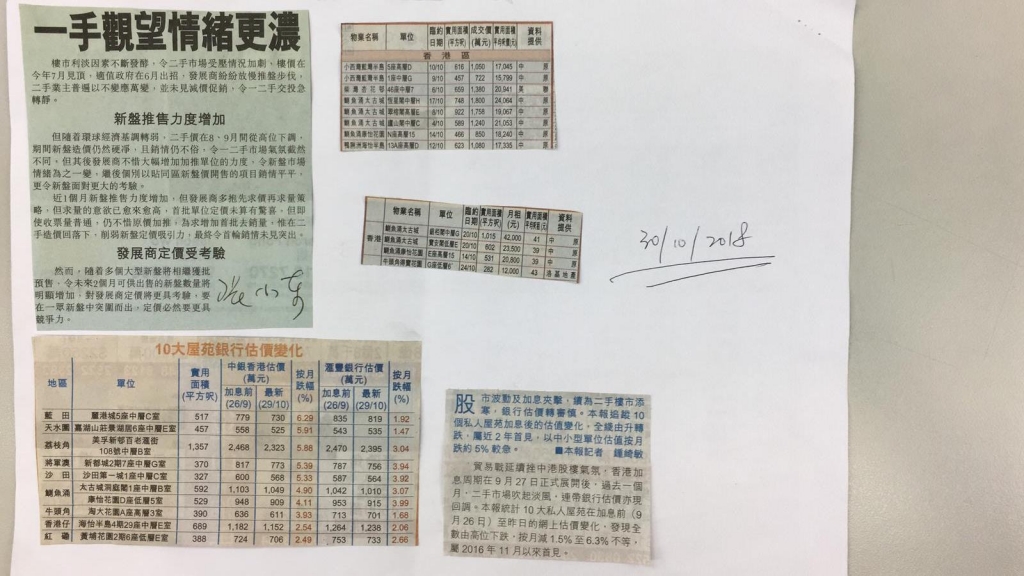 一手觀望情緒更濃
樓市利淡因素不斷發酵，令二手市場受壓情況加劇，樓價在
今年7月見頂，適值政府在6月出招，發展商紛紛放慢推盤步伐，
二手業主普遍以不變應萬變，並未見減價促銷，令一二手交投急
轉靜。
新盤推售力度增加
但隨着環球經濟基調轉弱，二手價在8、9月間從高位下調，
期間新盤造價仍然硬淨，且銷情仍不俗，令一二手市場氣氛截然
不同。但其後發展商不惜大幅增加加推單位的力度，令新盤市場
情緒為之一變，繼後個別以貼同區新盤價開售的項目銷情平平，
更令新盤面對更大的考驗。
近1個月新盤推售力度增加，但發展商多抱先求價再求量策
略，但求量的意欲已愈來愈高，首批單位定價未算有驚喜，但即
使收票量普通，仍不惜原價加推，為求增加首批去銷量，惟在二
手造價回落下，削弱新盤定價吸引力，最終令首輪銷情未見突出。
發展商定價受考驗
然而，隨着多個大型新盤將相繼獲批
預售，令未來2個月可供出售的新盤數量將
明顯增加，對發展商定價將更具考驗，要
在一眾新盤中突圍而出，定價必然要更具
競爭力。
物業名稱 單位 臨約日期 實用面積(平方呎) 成交價(萬元) 實用面積平均呎價(元) 資料提供
香港區
小西灣藍灣半島 5座高層D 10/10 616 1,050 17,045 中原
小西灣藍灣半島 1座中層G 9/10 457 722 15,799 中原
柴灣杏花邨 46座中層7 6/10 659 1,380 20,941 美聯
鰂魚涌太古城 恆星閣中層H 17/10 748 1,800 24,064 中原
鰂魚涌太古城 8/10 922 1,758 19,067 中原
鰂魚涌太古城 廬山閣中層C 4/10 589 1,240 21,053 中原
鰂魚涌康怡花園 N座高層15 14/10 466 850 18,240 中原
鴨脷洲海怡半島 13A座高層D 12/10 623 1,080 17,335 中原
物業名稱 單位 臨約日期 實用面積(平方呎) 月租(元) 實用面積平均呎租(元) 資料提供
香港
鰂魚涌太古城 銀柏閣中層G 20/10 1,015 42,000 41 中原
鰂魚涌太古城 寶安閣低層E 20/10 602 23,500 39 中原
鰂魚涌康怡花園 14/10 531 20,800 39 中原
牛頭角淘大花園 G座低層6 24/10 282 12,000 43 洛基地產
30/10/2018
10大屋苑銀行估價變化
地區 單位 實用面積(平方呎) 中銀香港估價(萬元) 加息前(26/9) 最新(29/10) 按月跌幅(%) 滙豐銀行估價(萬元) 加息前(26/9) 最新(29/10) 按月跌幅(%)
藍田 麗港城5座中層C室 517 779 730 6.29 835 819 1.92
天水圍 嘉湖山莊景湖居6座中層E室 457 558 525 5.91 543 535 1.47
荔枝角 美孚新邨百老滙街108號中層B室 1,357 2,468 2,323 5.88 2,470 2,395 3.04
將軍澳 新都城2期7座中層G室 370 817 773 5.39 787 756 3.94
沙田 沙田第一城1座中層C室 327 600 568 5.33 587 564 3.92
鰂魚涌 太古城洞庭閣1座中層B室 592 1,103 1,049 4.90 1,042 1,010 3.07
康怡花園D座低層5室 529 948 909 4.11 953 915 3.99
牛頭角 淘大花園A座高層3室 390 636 611 3.93 713 701 1.68
香港仔 海怡半島4期29座中層E室 689 1,182 1,152 2.54 1,264 1,238 2.06
紅磡 黃埔花園2期6座低層E室 388 724 706 2.49 753 733 2.66
股市波動及加息夾擊，續為二手樓市添
塞，銀行估價轉審慎。本報追蹤10
個私人屋苑加息後的估值變化，全線由升轉
跌，屬近2年首見，以中小型單位估值按月
跌約5%較急。 ■本報記者 鍾綺敏
貿易戰延續挫中港股樓氣氛，香港加
息周期在9月27日正式展開後，過去一個
月，二手市場吹起淡風，連帶銀行估價亦現
回調。本報統計10大私人屋苑在加息前（9
月26日）至昨日的網上估價變化，發現全
數由高位下跌，按月減1.5%至6.3%不等，
屬2016年11月以來首見。